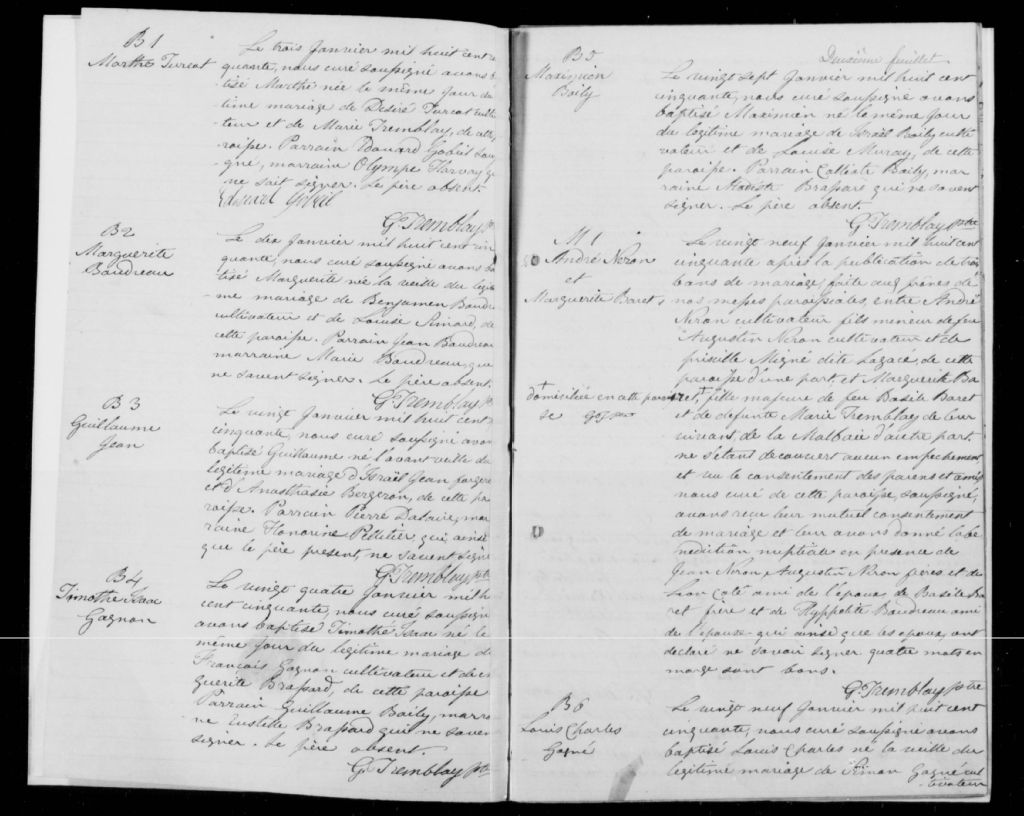 B1
Marthe Turcot
Le trois Janvier mil huit cent
quante, nous curé soussigné avons
-tisé Marthe née le même jour
-time mariage de Désiré Turcot
-teur et de Marie Tremblay, de
-roisse. Parrain Edouard Gobeil sou
gné, marraine Olympe Harvay
ne sait signer. Le père absent.
Edouard Gobeil
G. Tremblay
B2
Marguerite
Baudreau
Le dix Janvier mil huit cent cin
quante, nous curé soussigné avons ba
tisé Marguerite née la veille du légi
-me mariage de Benjamen Baudr
cultivateur et de Louise Simard, de
cette paroisse. Parrain Jean Baudreau
marraine Marie Baudreau, qui
ne savent signer. Le père absent.
G. Tremblay
B3
Guillaume
Jean
Le vingt Janvier mil huit cent
cinquante, nous curé soussigné avon
baptisé Guillaume né l'avant veille du
légitime mariage d'Israël Jean forger
et d'Anasthasie Bergeron, de cette pa
roisse. Parrain Pierre mar
raine Honorine Pelletier qui ainsi
que le père present, ne savent signer
G. Tremblay ptre
B4
Timothé Isaac
Gagnon
Le vingt quatre Janvier mil h
cent cinquante, nous curé soussign
avons baptisé Timothé Isaac né le
même jour du légitime mariage de
François Gagnon cultivateur et de
guerite Brassard, de cette paroisse
Parrain Guillaume Baily, marra
ne Eustelle Brassard qui ne saven
signer. Le père absent.
G. Tremblay ptre
Deuxième feuillet
B5
Maximien
Baily
Le vingt sept Janvier mil huit cent
cinquante, nous curé soussigné avons
baptisé Maximien né le même jour
du légitime mariage de Israël Baily culti
vateur et de Louise Muray, de cette
paroisse. Parrain Calliste Baily, mar
raine Brassard qui ne savent
signer. Le père absent.
G. Tremblay ptre
M1
André Niron
et
Marguerite Baret
Le vingt neuf Janvier mil huit cent
cinquante après la publication de trois
bans de mariage, faite aux prônes de
nos messes paroissiales, entre André
Niron cultivateur fils mineur de feu
Augustin Niron cultivateur et de
priscille Migné dite Lagacé, de cette
paroisse d'une part, et Marguerite Ba
ret+, fille majeure de feu Basile Baret
+domiciliée en cette parois
se
et de defunte Marie Tremblay de leur
vivant, de la Malbaie d'autre part.
ne s'étant decouvert aucun empechement,
et vu le consentement des parens et amis
nous curé de cette paroisse, soussigné,
avons reçu leur mutuel consentement
de mariage et leur avons donné la be
nédiction nuptiale en presence de
Jean Niron, Augustin Niron frères et de
Leon Coté ami de l'epoux, de Basile Ba
ret frère et de Hyppolite Baudreau ami
de l'épouse qui ainsi que les epoux, ont
declaré ne savoir signer quatre mots en
marge sont bons.
G. Tremblay ptre
B6
Louis Charles
Gagné
Le vingt neuf Janvier mil huit cent
cinquante, nous curé soussigné avons
baptisé Louis Charles né la veille du
légitime mariage de Simon Gagné cul
-tivateur